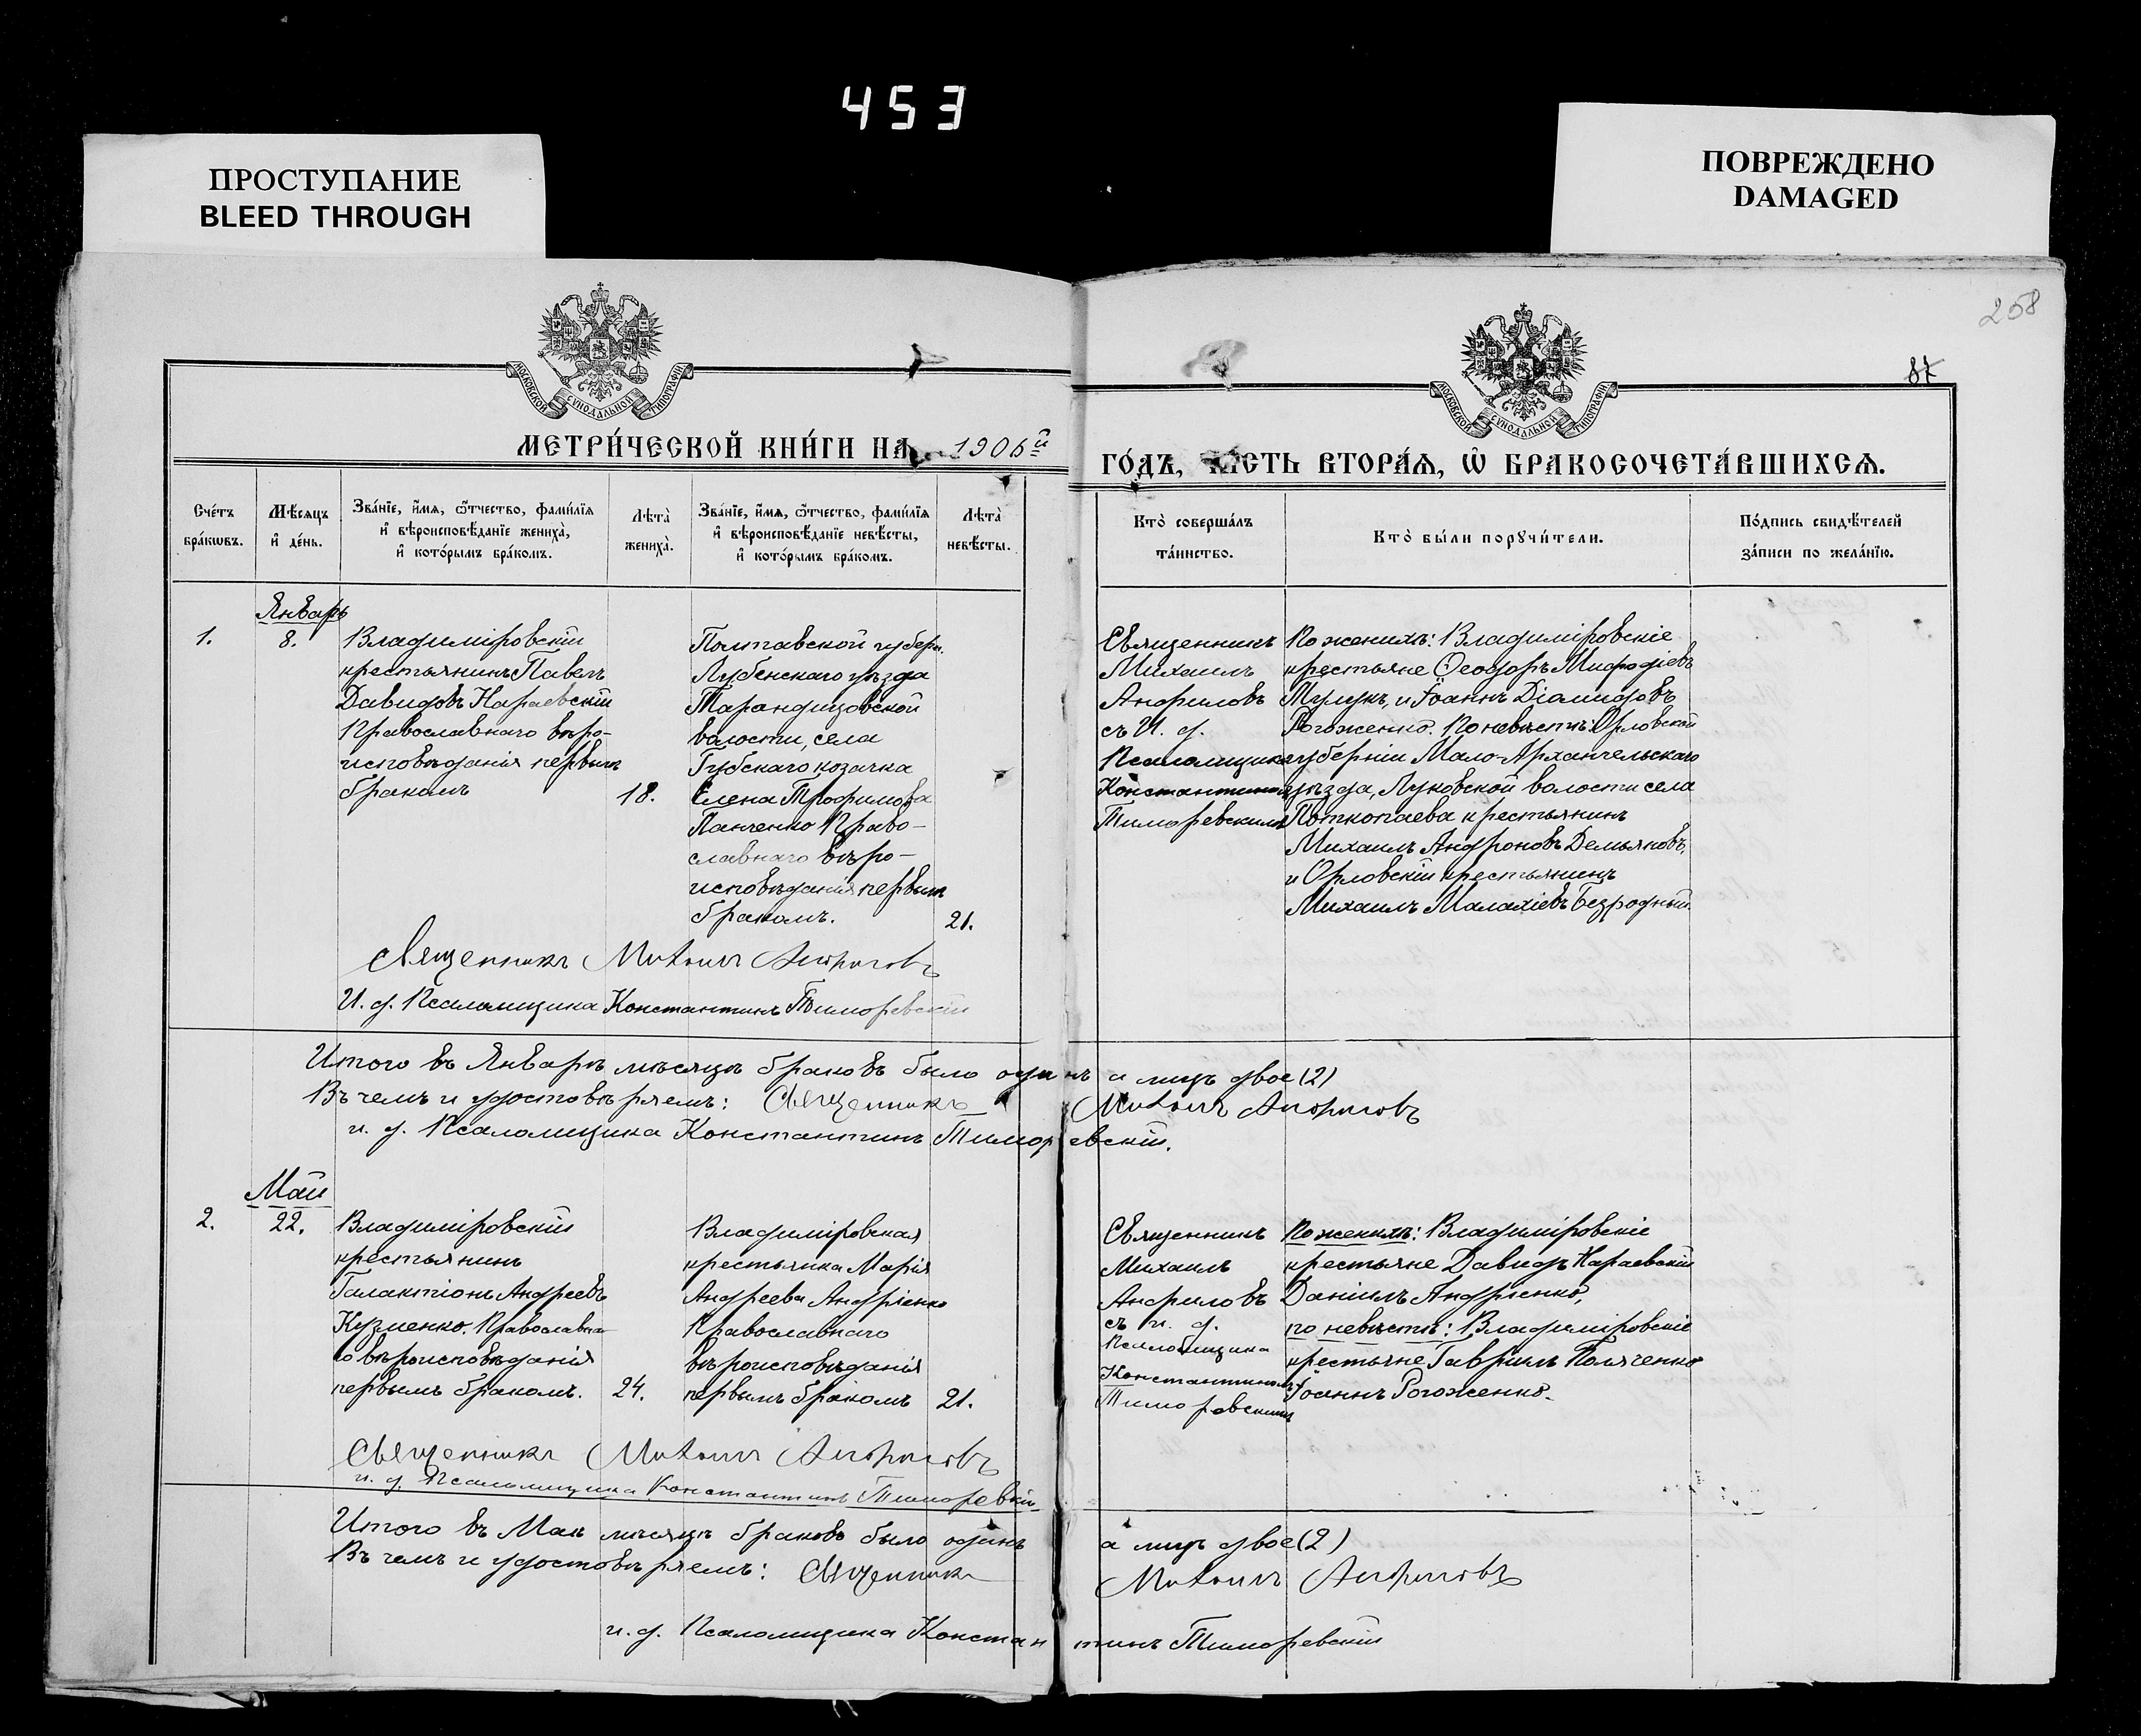 453
ПРОСТУПАНИЕ
BLEED THROUGH
ПОВРЕЖДЕНО
DAMAGED
258
87
МОСКОВСКОЙ СѴНОДАЛЬНОЙ ТИПОГРАФІИ
МОСКОВСКОЙ СѴНОДАЛЬНОЙ ТИПОГРАФІИ
МЕТРИ́ЧЕСКОЙ КНИ́ГИ НА 1906й
ГО́ДЪ, ЧА́СТЬ ВТОРА́Ѧ, Ѽ БРАКОСОЧЕТА́ВШИХСѦ.
Сче́тъ
бра́кѡвъ.
Мѣ́сѧцъ
и҆ де́нь.
Зва́нїе, и҆́мѧ, ѻ҆́тчество, фами́лїѧ
и҆ вѣроисповѣ́данїе жениха̀,
и҆ кото́рымъ бра́комъ.
Лѣта̀
жениха̀.
Зва́нїе, и҆́мѧ, ѻ҆́тчество, фами́лїѧ
и҆ вѣроисповѣ́данїе невѣ́сты,
и҆ кото́рымъ бра́комъ.
Лѣта̀
невѣ́сты.
Кто̀ соверша́лъ
та́инство.
Кто̀ бы́ли порꙋчи́тели.
По́дпись свидѣ́телей
за́писи по жела́нїю.
Январь
1.
8.
Владиміровскій
крестьянинъ Павелъ
Давидовъ Караевскій
Православнаго вѣро-
исповѣданія первымъ
бракомъ
18.
Полтавской губерн.
Лубенскаго уѣзда
Тарандицовской
волости, села
Губскаго козачка
Елена Трофимова
Панченко Право-
славнаго вѣро-
исповѣданія первымъ
бракомъ.
21.
Священникъ
Михаилъ
Анфиловъ
съ И. д.
Псаломщика
Константиномъ
Тиморевскимъ
По женихѣ: Владиміровскіе
крестьяне Ѳеодоръ Мифодіевъ
Мулукъ, и Іоаннъ Діамидовъ
Рогоженко. По невѣстѣ: Орловской
губерніи Мало-Архангельскаго
уѣзда, Луковской волости села
Поткопаева крестьянинъ
Михаилъ Андроновъ Демьяновъ,
и Орловскій крестьянинъ
Михаилъ Малахіевъ Безродный.
Священникъ Михаилъ Анфиловъ
И. д. Псаломщика Константинъ Тиморевскій
Итого въ Январѣ мѣсяцѣ браковъ было одинъ а лицъ двое (2)
Въ чемъ и удостовѣряемъ: Священникъ Михаилъ Анфиловъ
и. д. Псаломщика Константинъ Тиморевскій.
Май
2.
22.
Владиміровскій
крестьянинъ
Галактіонъ Андреевъ
Кузменко. Православна-
го вѣроисповѣданія
первымъ бракомъ.
24.
Владиміровская
крестьянка Марія
Андреева Андріенко
Православнаго
вѣроисповѣданія
первымъ бракомъ
21.
Священникъ
Михаилъ
Анфиловъ
съ и. д.
Псаломщика
Константиномъ
Тиморевскимъ
По женихѣ: Владиміровскіе
крестьяне Давидъ Караевскій
Даніилъ Андріенко,
по невѣстѣ: Владиміровскіе
крестьяне Гавріилъ Поляченко
Іоаннъ Рогоженко.
Священникъ Михаилъ Анфиловъ
и. д. Псаломщика Константинъ Тиморевскій
Итого въ Маѣ мѣсяцѣ браковъ было одинъ а лицъ двое (2)
Въ чемъ и удостовѣряемъ: Священникъ Михаилъ Анфиловъ
и. д. Псаломщика Константинъ Тиморевскій